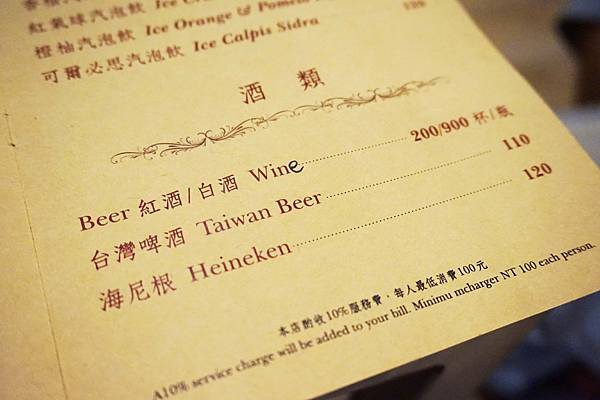 紅氣球汽泡飲 Ice
橙柚汽泡飲 Ice Orange & Pomelo
可爾必思汽泡飲 Ice Calpis Sidra
酒 類
Beer 紅酒/白酒 Wine 200/900 杯/瓶
台灣啤酒 Taiwan Beer 110
海尼根 Heineken 120
本店酌收10%服務費，每人最低消費100元
A10% service charge will be added to your bill. Minimu mcharger NT 100 each person.